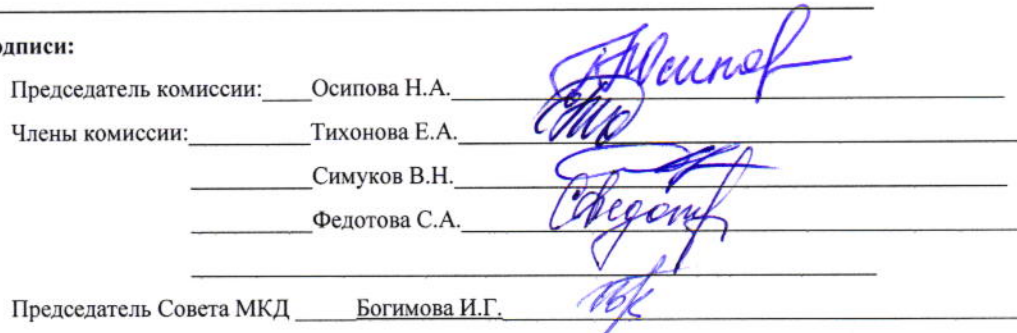 одписи:
Председатель комиссии: Осипова Н.А. Осипов
Члены комиссии: Тихонова Е.А.
Симуков В.Н.
Федотова С.А.
Председатель Совета МКД Богимова И.Г.